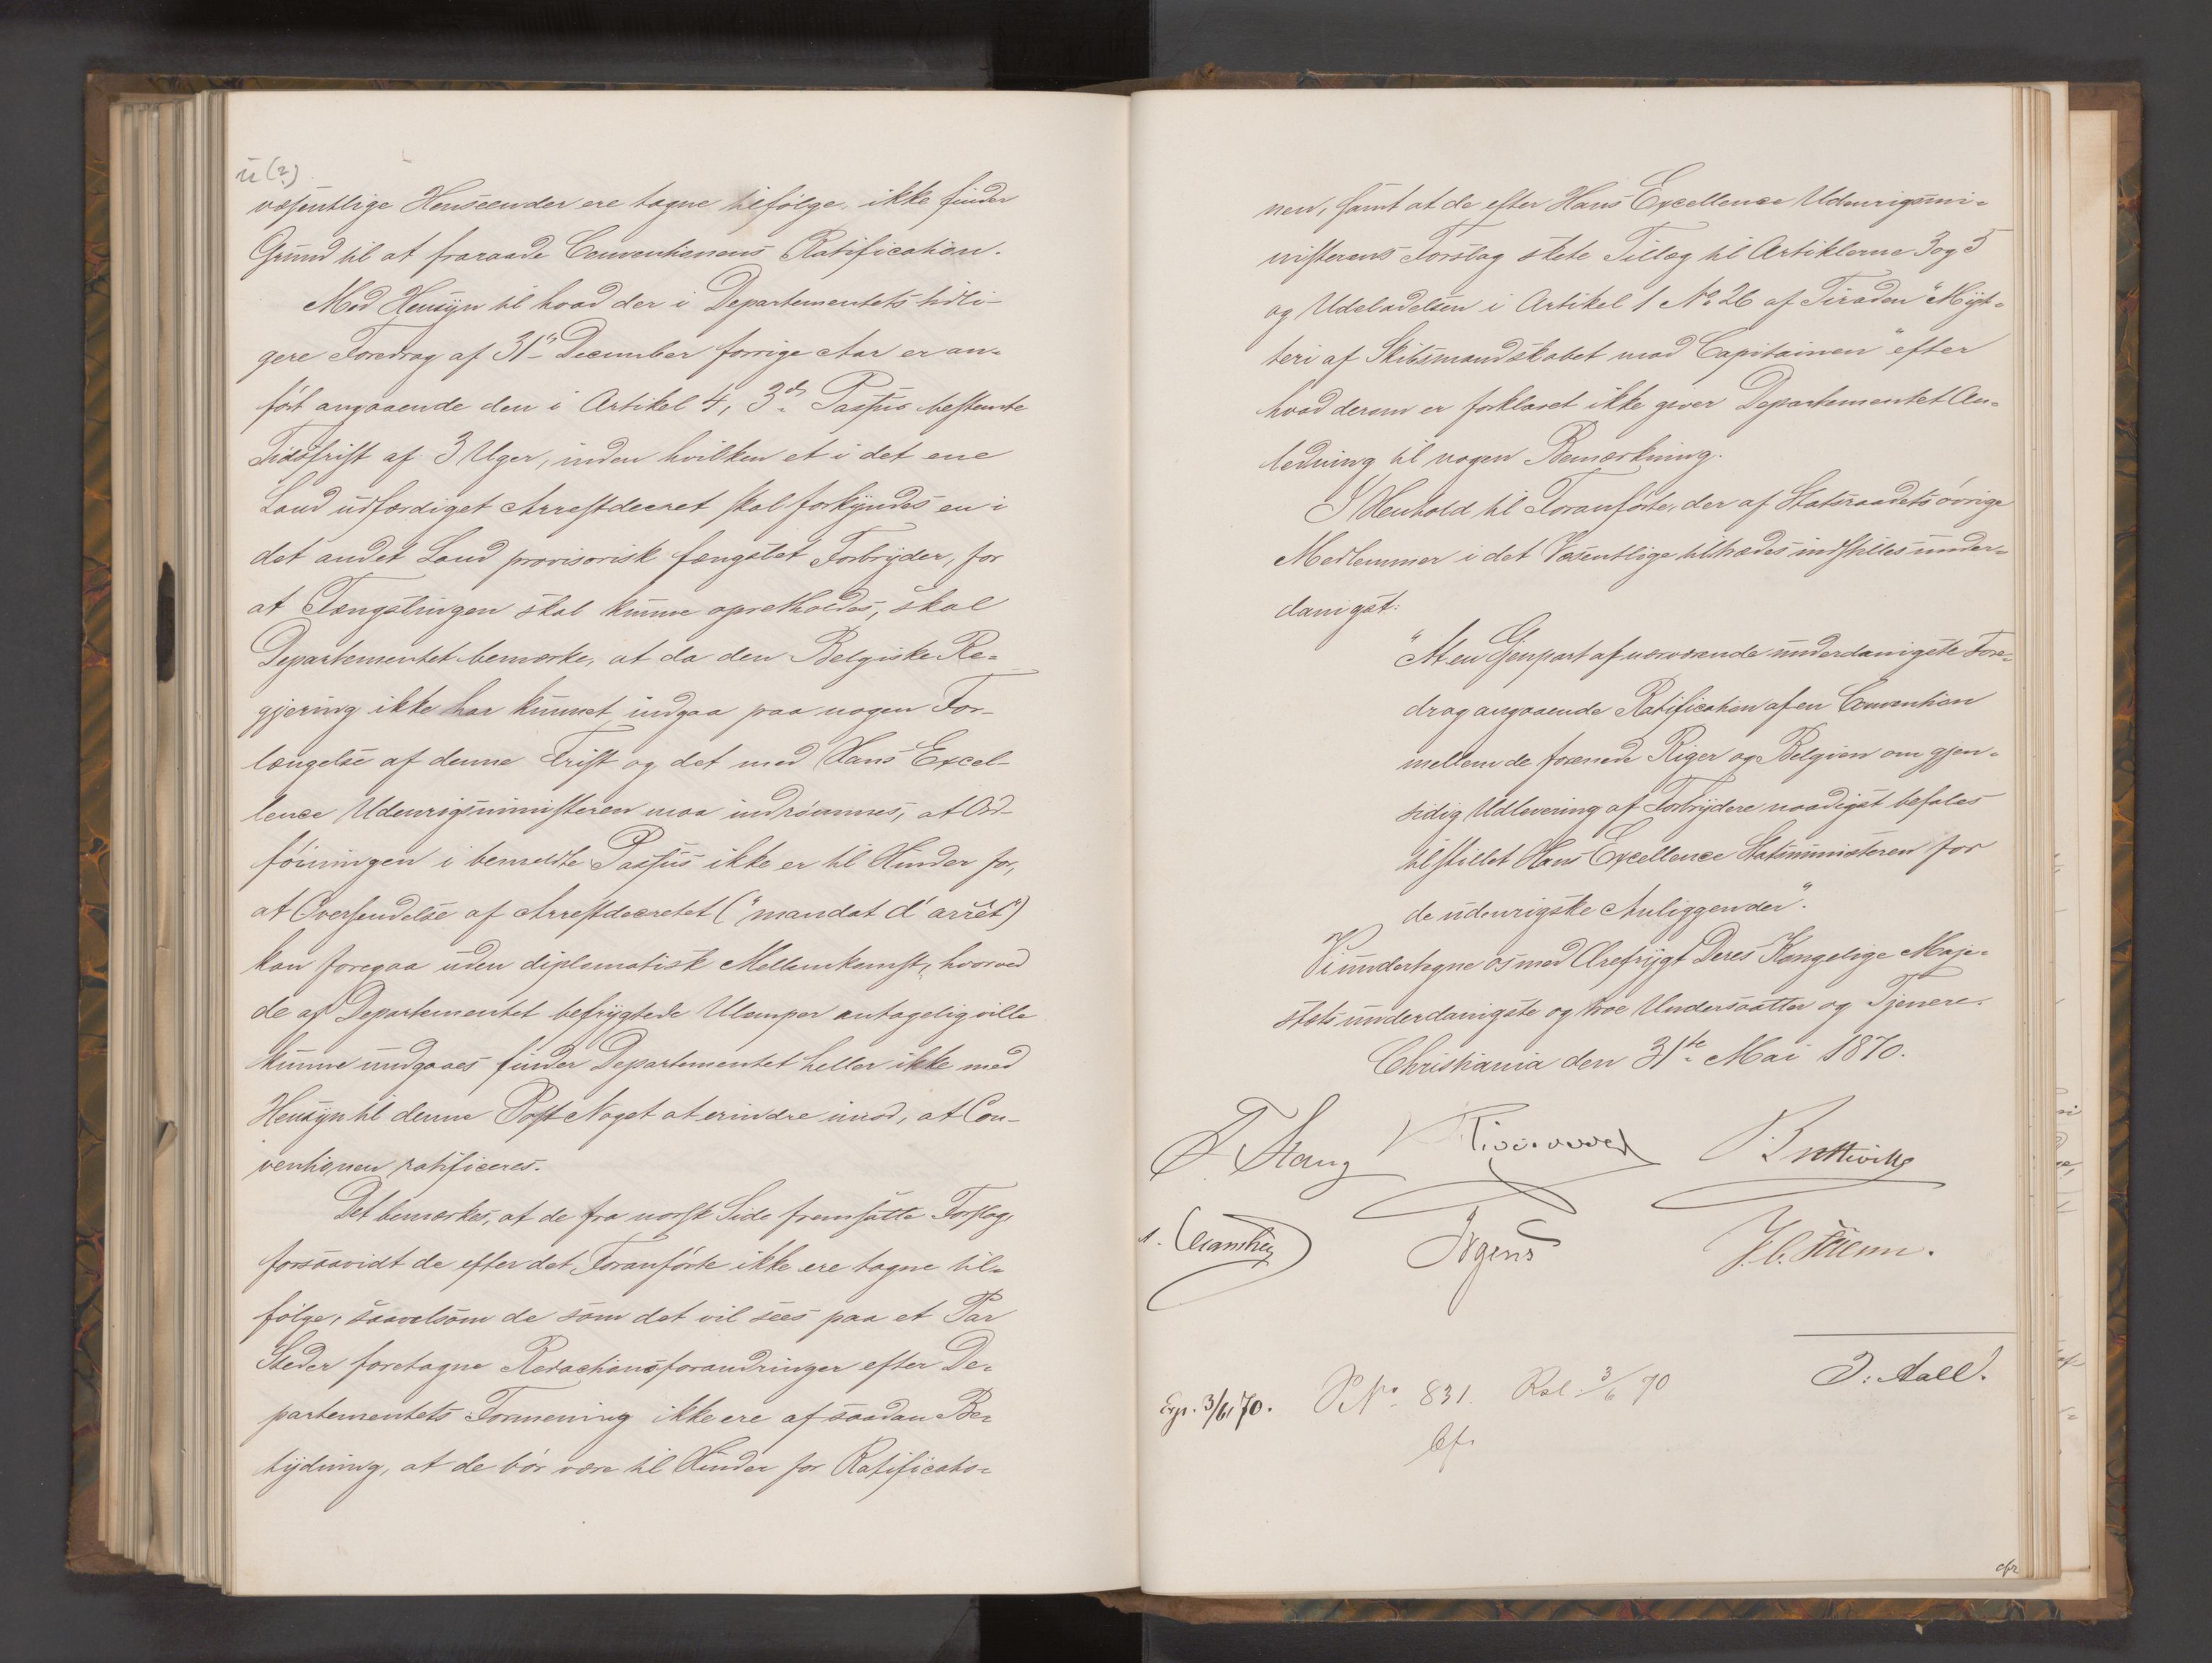 væsentlige Henseender ere tagne tilfølge, ikke finder
Grund til at fraraade Conventionens Ratification.
Med Hensyn til hvad der i Departementets tidli-
gere Foredrag af 31te December forrige Aar er an-
ført angaaende den i Artikel 4, 3die Passus bestemte
Tidsfrist af 3 Uger, inden hvilken et i det ene
Land udfærdiget Arrestdecret skal forkyndes en i
det andet Land provisorisk fængslet Forbryder, for
at Fængslingen skal kunne opretholdes, skal
Departementet bemærke, at da den Belgiske Re-
gjering ikke har kunnet indgaa paa nogen For-
længelse af denne Frist og det med Hans Excel-
lence Udenrigsministeren maa indrømmes, at Ord-
føiningen i bemeldte Passus ikke er til Hinder for,
at Oversendelse af Arrestdecretet ("mandat d'arrêt")
kan foregaa uden diplomatisk Mellemkomst, hvorved
de af Departementet befrygtede Ulemper antagelig ville
kunne undgaaes finder Departementet heller ikke med
Hensyn til denne Post Noget at erindre imod, at Con-
ventionen ratificeres.
Det bemærkes, at de fra norsk Side fremsatte Forslag,
forsaavidt de efter det Foranførte ikke ere tagne til-
følge, saavelsom de som det vil sees paa et Par
Steder foretagne Redactionsforandringer efter De-
partementets Formening ikke ere af saadan Be-
tydning, at de bør være til Hinder for Ratificatio-
nen, samt at de efter Hans Excellence Udenrigsmi-
nisterens Forslag skete Tillæg til Artiklerne 3 og 5
og Udeladelsen i Artikel 1 No 26 af Tiraden "Myt-
teri af Skibsmandskabet mod Capitainen" efter
hvad derom er forklaret ikke giver Departementet An-
ledning til nogen Bemærkning.
I Henhold til Foranførte, der af Statsraadets øvrige
Medlemmer i det Væsentlige tiltrædes indstilles under-
danigst:
"At en Gjenpart af nærværende underdanigste Fore-
drag angaaende Ratification af en Convention
mellem de forenede Riger og Belgien om gjen-
sidig Udlevering af Forbrydere naadigst befales
tilstillet Hans Excellence Statsministeren for
de udenrigske Anliggender".
Vi undertegne os med Ærefrygt Deres Kongelige Maje-
stæts underdanigste og troe Undersaatter og Tjenere.
Christiania den 31te Mai 1870.
F. Stang
Irgens
J. Aall.
Exp. 3/6 70. PNo 831. 3/6 70